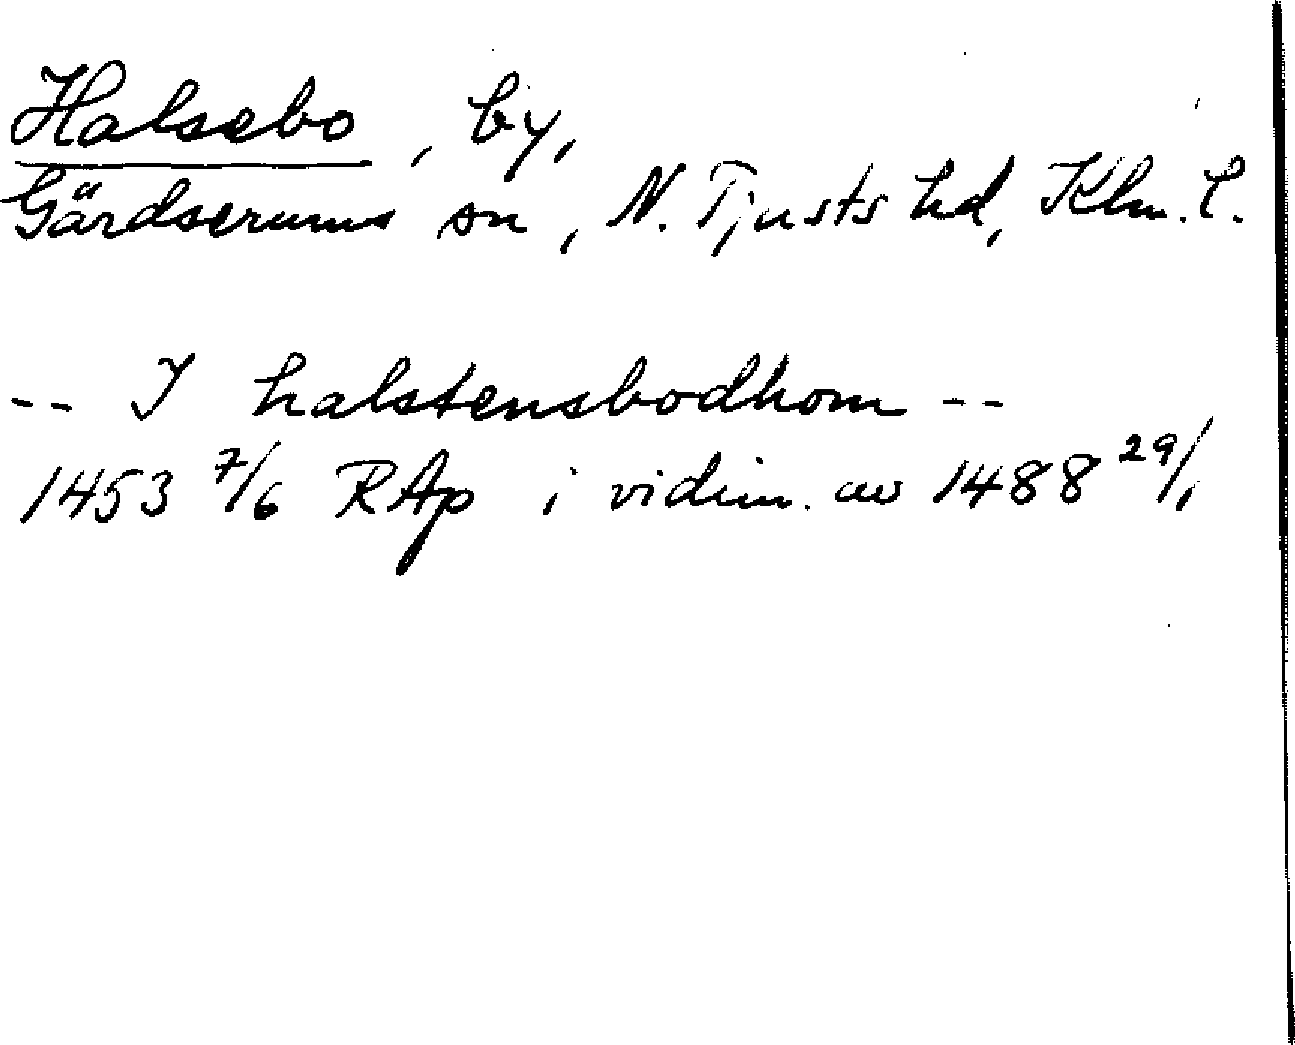 Halsebo, by,
Gärdserums sn, N. Tjusts hd, Klm. l.
-- I halstensbodhom --
1453 7/6 RAp i vidim. av 1488 29/1